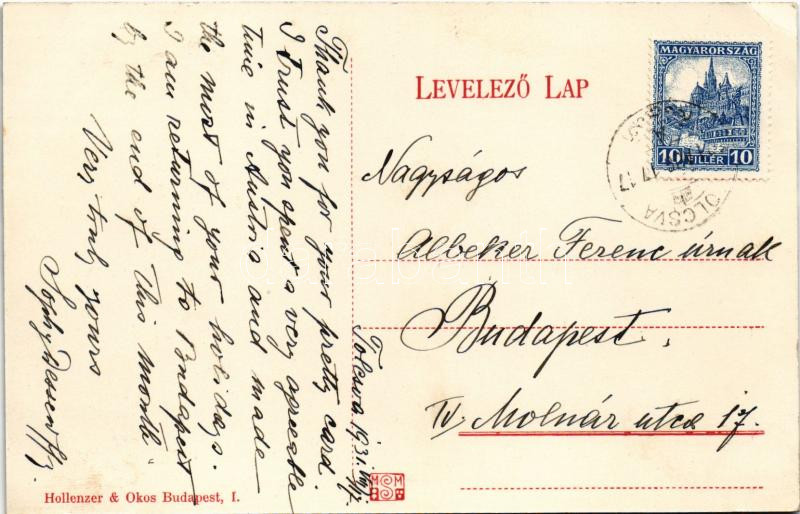 Tolcsva 1931. VIII/17.
Thank you for your pretty card.
I trust you spent a very agreeable
time in Austria and made
the most of your holidays.
I am returning to Budapest
by the end of this month.
Very truly yours
Sophy Dessewffy.
LEVELEZŐ LAP
MAGYARORSZÁG
10 FILLÉR 10
TOLCSVA
Nagyságos
Albeker Ferenc úrnak
Budapest.
IV. Molnár utca 17.
Hollenzer & Okos Budapest, I.